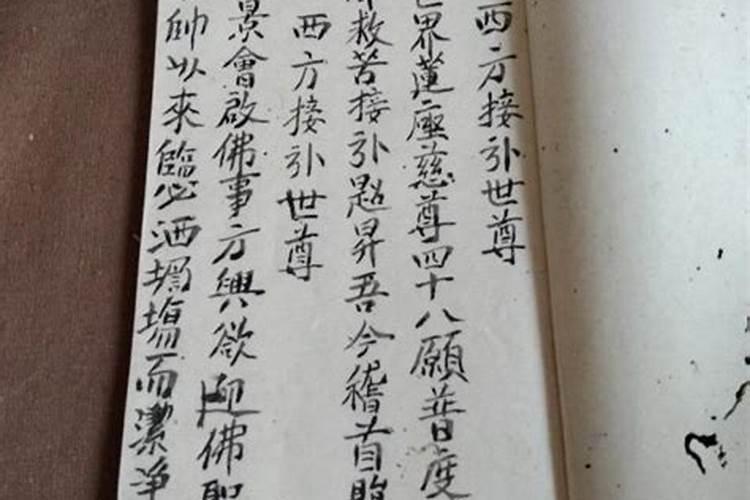 西方接引世尊
世界蓮座慈尊四十八願普度
救苦接引超昇吾今稽首
西方接引世尊
景會啟佛事方興欲迎佛聖
帥以來臨必洒壇場而潔淨